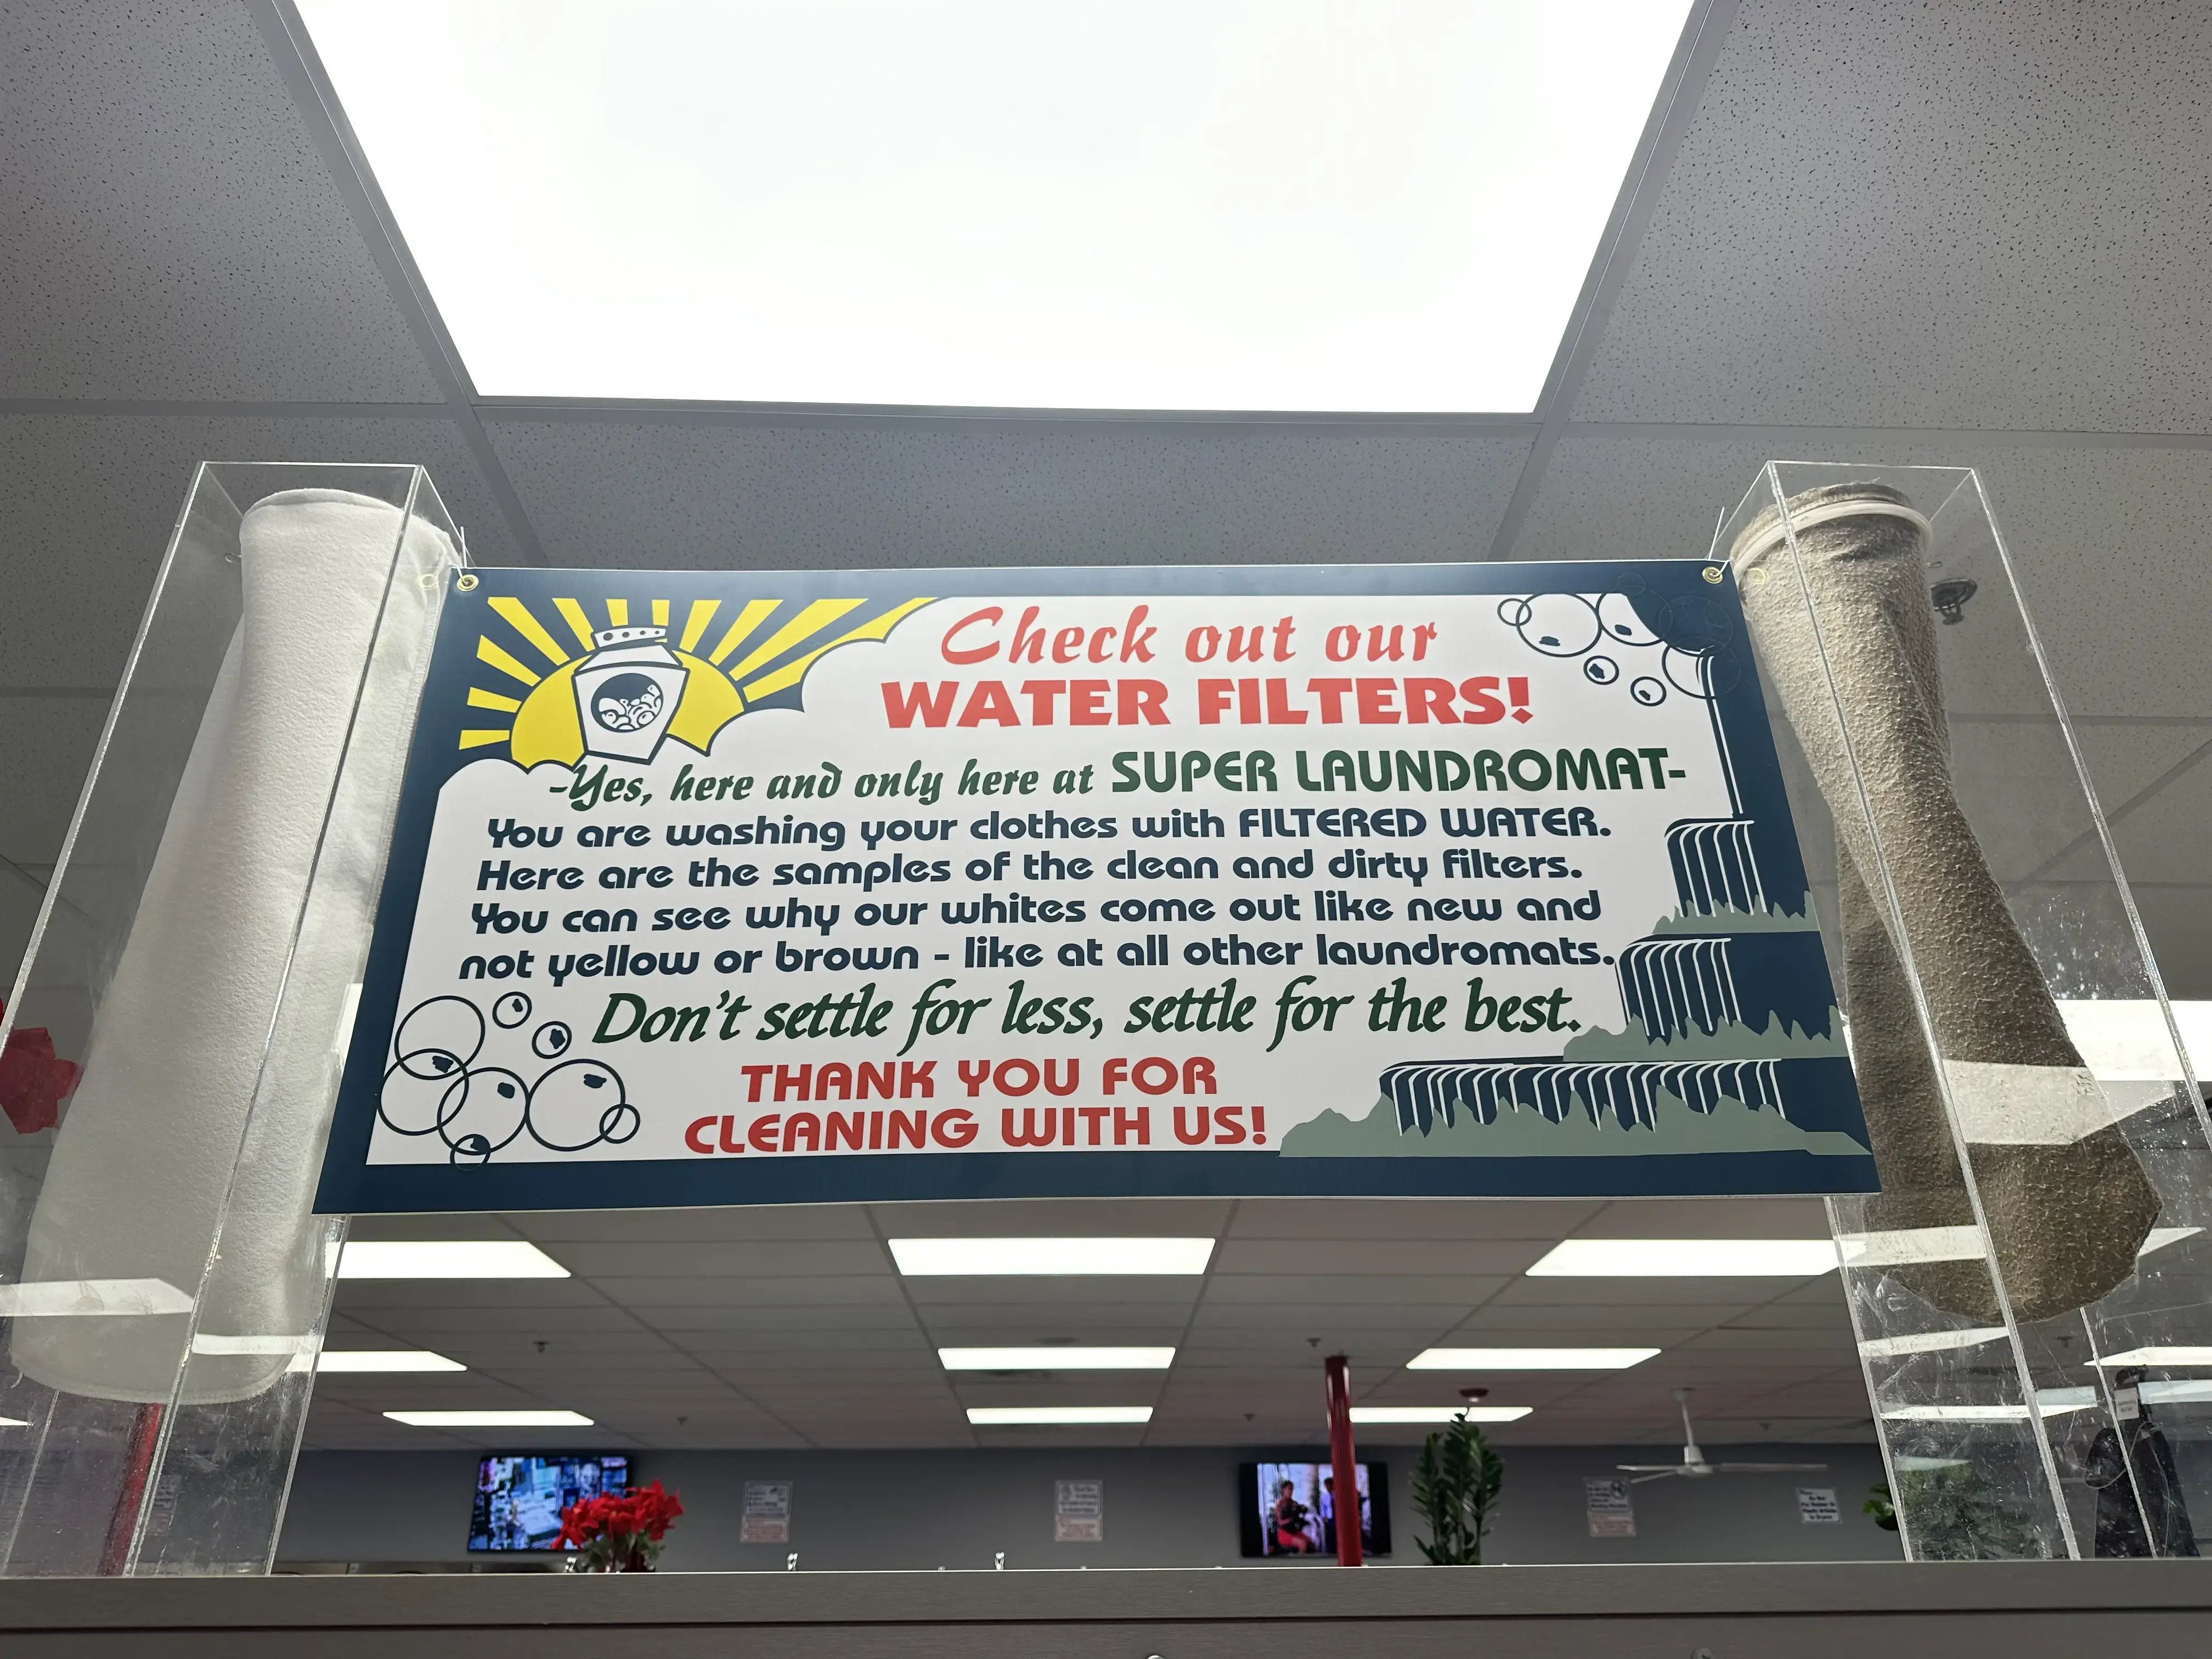 Check out our
WATER FILTERS!
-Yes, here and only here at SUPER LAUNDROMAT-
You are washing your clothes with FILTERED WATER.
Here are the samples of the clean and dirty filters.
You can see why our whites come out like new and
not yellow or brown - like at all other laundromats.
Don't settle for less, settle for the best.
THANK YOU FOR
CLEANING WITH US!